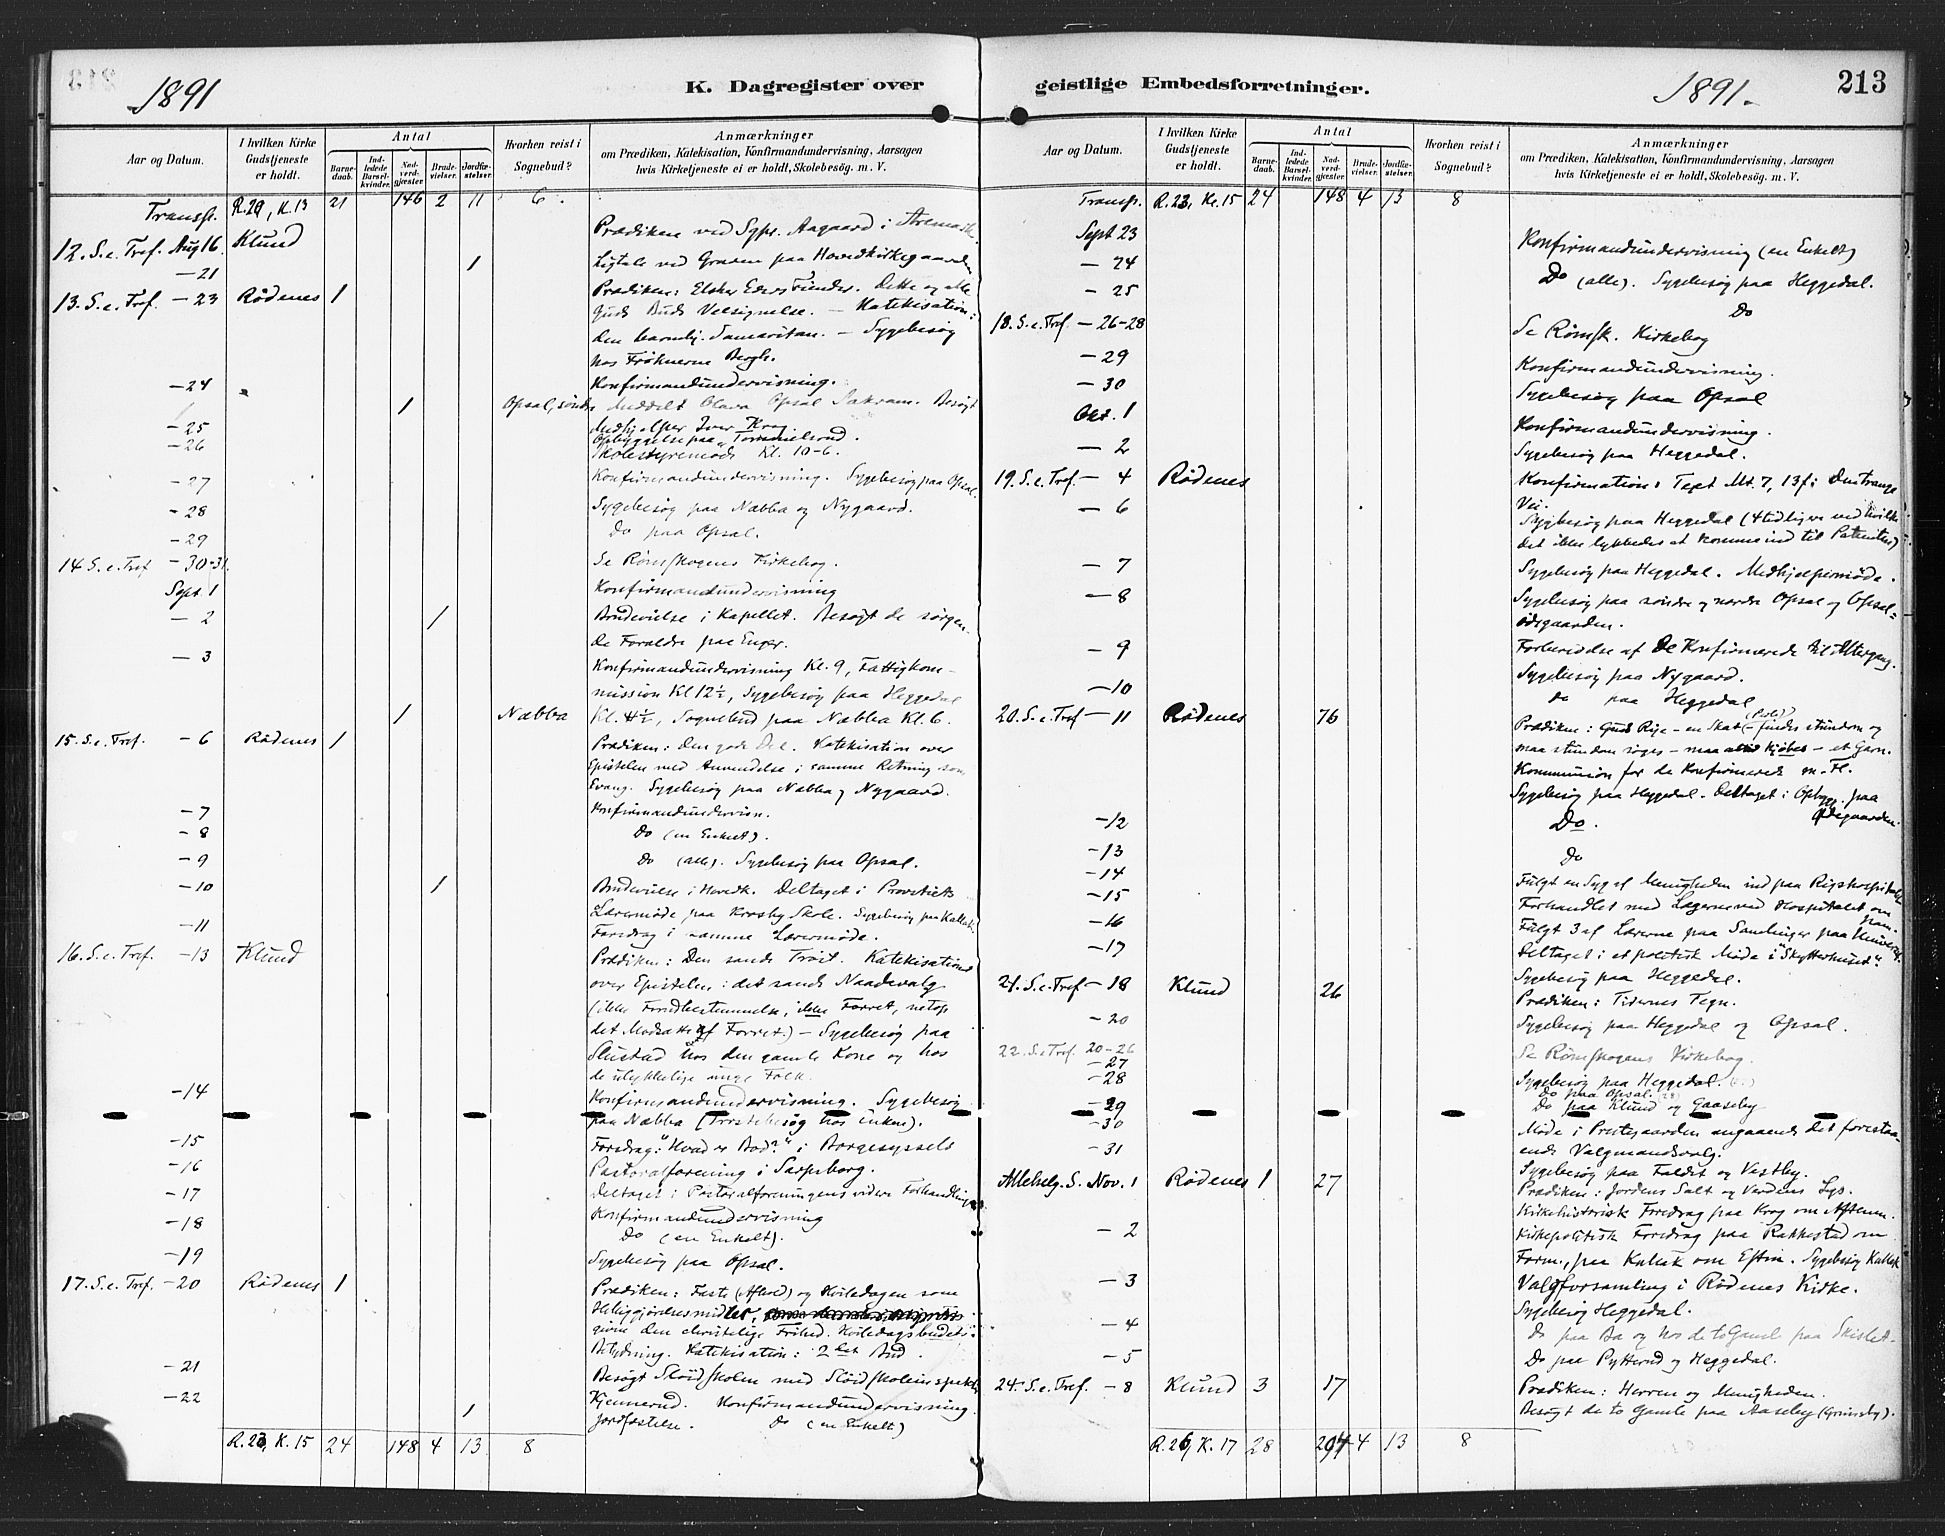 1891
K. Dagregister over
Aar og Datum.
I hvilken Kirke Gudstjeneste er holdt.
Antal
Barnedaab.
Indledede Barselkvinder.
Nadverdgjæster.
Brudevielser.
Jordfæstelser.
Hvorhen reist i Sognebud?
Anmærkninger
om Prædiken, Katekisation, Konfirmandundervisning, Aarsagen
hvis Kirketjeneste ei er holdt, Skolebesøg. m. V.
Transp. R.20, K.13 21 146 2 11 6.
12. S.e. Tref. Aug 16. Klund Prædiken ved Sgpr. Aagaard i Aremark.
—21 1 Ligtale ved Graven paa Hovedkirkegaarden
13. S.e. Tref. —23 Rødenes 1 Prædiken: Elsker Eders Fiender. Dette og alle
Guds Buds Velsignelse. — Katekisation:
den barmhj. Samaritan. — Sygebesøg
hos Frøknerne Bergh.
—24 Konfirmandundervisning.
1 Opsal, søndre Meddelt Olava Opsal Sakram. Besøgt
—25 Medhjelper Iver Krog.
Opbyggelse paa Tommelsrud.
—26 Skolestyremøde Kl. 10-6.
—27 Konfirmandundervisning. Sygebesøg paa Opsal.
—28 Sygebesøg paa Næbba og Nygaard.
—29 Do paa Opsal.
14 S.e. Tref —30-31. Se Rømskogens Kirkebog.
Sept 1 Konfirmandundervisning
—2 1 Brudevielse i Kapellet. Besøgt de sørgen-
de Forældre paa Enger.
—3 Konfirmandundervisning Kl. 9, Fattigkom-
mission Kl 12½, Sygebesøg paa Heggedal
1 Næbba Kl. 4½, Sognebud paa Næbba Kl. 6.
15. S.e. Tref. —6 Rødenes 1 Prædiken: Den gode Del. Katekisation over
Epistelen med Anvendelse i samme Retning som
Evang. Sygebesøg paa Næbba og Nygaard.
—7 Konfirmandundervisn.
—8 Do (en Enkelt).
—9 Do (alle). Sygebesøg paa Opsal.
—10 1 Brudevielse i Hovedk. Deltaget i Provstiets
Lærermøde paa Krosby Skole. Sygebesøg paa
—11 Foredrag i samme Lærermøde.
16. S.e. Tref. —13 Klund Prædiken: Den sande Trøst. Katekisation
over Epistelen: det sande Naadevalg
(ikke Forudbestemmelse, ikke Forret, netop
det Modsatte af Forret.) — Sygebesøg paa
Slustad hos den gamle Kone og hos
de ulykkelige unge Folk.
—14 Konfirmandundervisning. Sygebesøg
paa Næbba (Trøstebesøg hos Enken).
—15 Foredrag: "Hvad er Bod?" i Borgesyssels
—16 Pastoralforening i Sarpsborg.
—17 Deltaget i Pastoralforeningens videre Forhandlinger
—18 Konfirmandundervisning
Do (en Enkelt).
—19 Sygebesøg paa Opsal.
17. S.e. Tref. —20 Rødenes 1 Prædiken: Faste (Afhold) og Hviledagen som
Helliggjørelsesmidler,
givne den christelige Frihed. Hviledagsbudets
Betydning. Katekisation: 2det Bud.
—21 Besøgt Sløidskolen med Sløidskoleinspektør
—22 Kjennerud. Konfirmandundervisning.
1 Jordfæstelse. Do (en Enkelt)
R.23, K.15 24 148 4 13 8

geistlige Embedsforretninger.
1891.
213
Aar og Datum.
I hvilken Kirke Gudstjeneste er holdt.
Antal
Barnedaab.
Indledede Barselkvinder.
Nadverdgjæster.
Brudevielser.
Jordfæstelser.
Hvorhen reist i Sognebud?
Anmærkninger
om Prædiken, Katekisation, Konfirmandundervisning, Aarsagen
hvis Kirketjeneste ei er holdt, Skolebesøg. m. V.
Transp. R.23, K.15 24 148 4 13 8
Sept 23 Konfirmandundervisning (en Enkelt)
—24 Do (alle). Sygebesøg paa Heggedal.
—25 Do
18. S.e. Tref. —26-28 Se Rømsk. Kirkebog
—29 Konfirmandundervisning.
—30 Sygebesøg paa Opsal
Okt. 1 Konfirmandundervisning.
—2 Sygebesøg paa Heggedal.
19. S.e. Tref. —4 Rødenes Konfirmation: Text Mt. 7, 13f: Den trange
Vei.
—6 Sygebesøg paa Heggedal (4 tidligere ved hvilke
det ikke lykkedes at komme ind til Patienten)
—7 Sygebesøg paa Heggedal. Medhjelpermøde.
—8 Sygebesøg paa søndre og nordre Opsal og Opsal-
ødegaarden.
—9 Forberedelse af de Konfirmerede til Altergang.
Sygebesøg paa Nygaard.
—10 Do paa Heggedal
20. S.e. Tref —11 Rødenes 76 Prædiken: Guds Rige — en Skat (Perle) — findes stundom og
maa stundom søges — maa altid kjøbes — et Garn.
Kommunion for de Konfirmerede m. Fl.
Sygebesøg paa Heggedal. Deltaget i Opbygg. paa
Ødegaarden.
—12 Do.
—13 Do
—14 Fulgt en Syg af Menigheden ind paa Rigshospitalet
—15 Forhandlet med Lægerne ved Hospitalet om
ham.
—16 Fulgt 3 af Lærerne paa Samlinger paa Universit.
—17 Deltaget i et politisk Møde i "Skytterhuset".
Sygebesøg paa Heggedal.
21. S.e. Tref —18 Klund 26 Prædiken: Tidernes Tegn.
—20 Sygebesøg paa Heggedal og Opsal.
22. S.e. Tref. 20-26 Se Rømskogens Kirkebog.
—27 Sygebesøg paa Heggedal.
—28 Do paa Opsal. (28)
—29 Do paa Klund og Gaaseby
—30 Møde i Prestegaarden angaaende det forestaa-
ende Valgmandsvalg.
—31 Sygebesøg paa Faldet og Vestby.
Allehelg. S. Nov. 1 Rødenes 1 27 Prædiken: Jordens Salt og Verdens Lys.
Kirkehistorisk Foredrag paa Krog om Aftenen.
—2 Kirkepolitisk Foredrag paa Rakkestad om
Form., paa Kallak om Efterm. Sygebesøg Kallak
—3 Valgforsamling i Rødenes Kirke.
Sygebesøg Heggedal.
—4 Do paa Ba og hos de to Gamle paa
—5 Do paa Pytterud og Heggedal.
24. S.e. Tref. —8 Klund 3 17 Prædiken: Herren og Menigheden.
Besøgt de to Gamle paa Aaseby (Grimsby).
R.26, K. 17 28 294 4 13 8